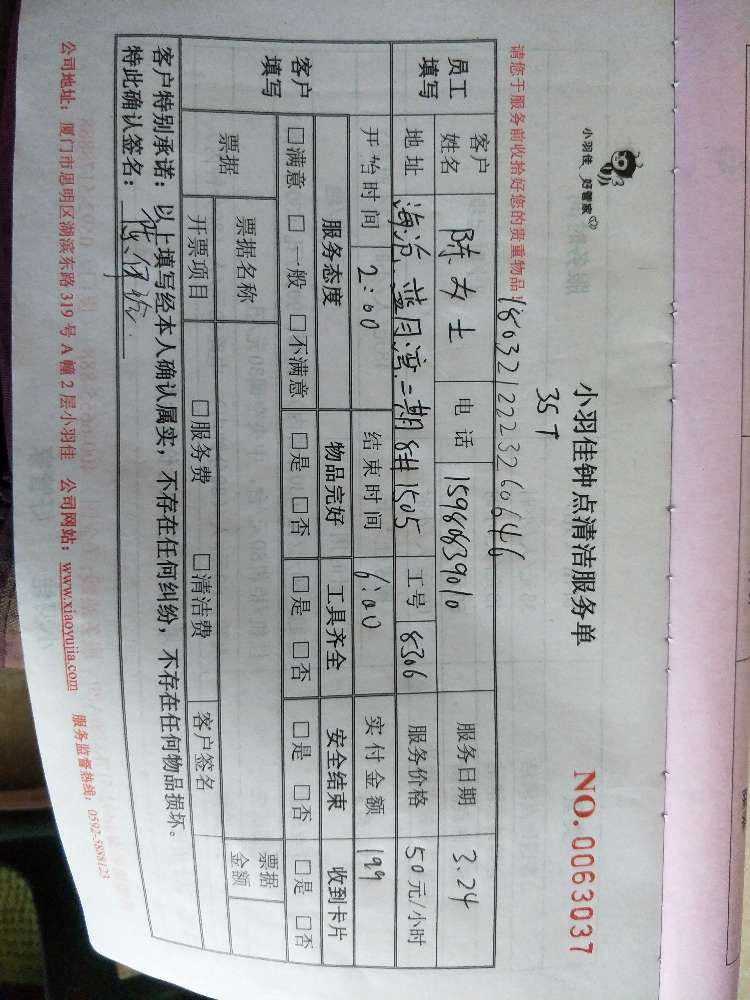 小羽佳 好管家
小羽佳钟点清洁服务单
NO. 0063037
35T
请您于服务前收拾好您的贵重物品!
1803212223260646
员工填写
客户姓名 陈女士 电话 15980839010 服务日期 3.24
地址 海沧蓝月湾二期8#1505 工号 8306 服务价格 50元/小时
开始时间 2:00 结束时间 6:00 实付金额 199
客户填写
服务态度 物品完好 工具齐全 安全结束 收到卡片
□满意 □一般 □不满意 □是 □否 □是 □否 □是 □否 □是 □否
票据 票据名称 票据金额
开票项目 □服务费 □清洁费 客户签名
客户特别承诺:以上填写经本人确认属实,不存在任何纠纷,不存在任何物品损坏。
特此确认签名:
公司地址:厦门市思明区湖滨东路319号A幢2层小羽佳 公司网站:www.xiaoyujia.com 服务监督热线:0592-5888123